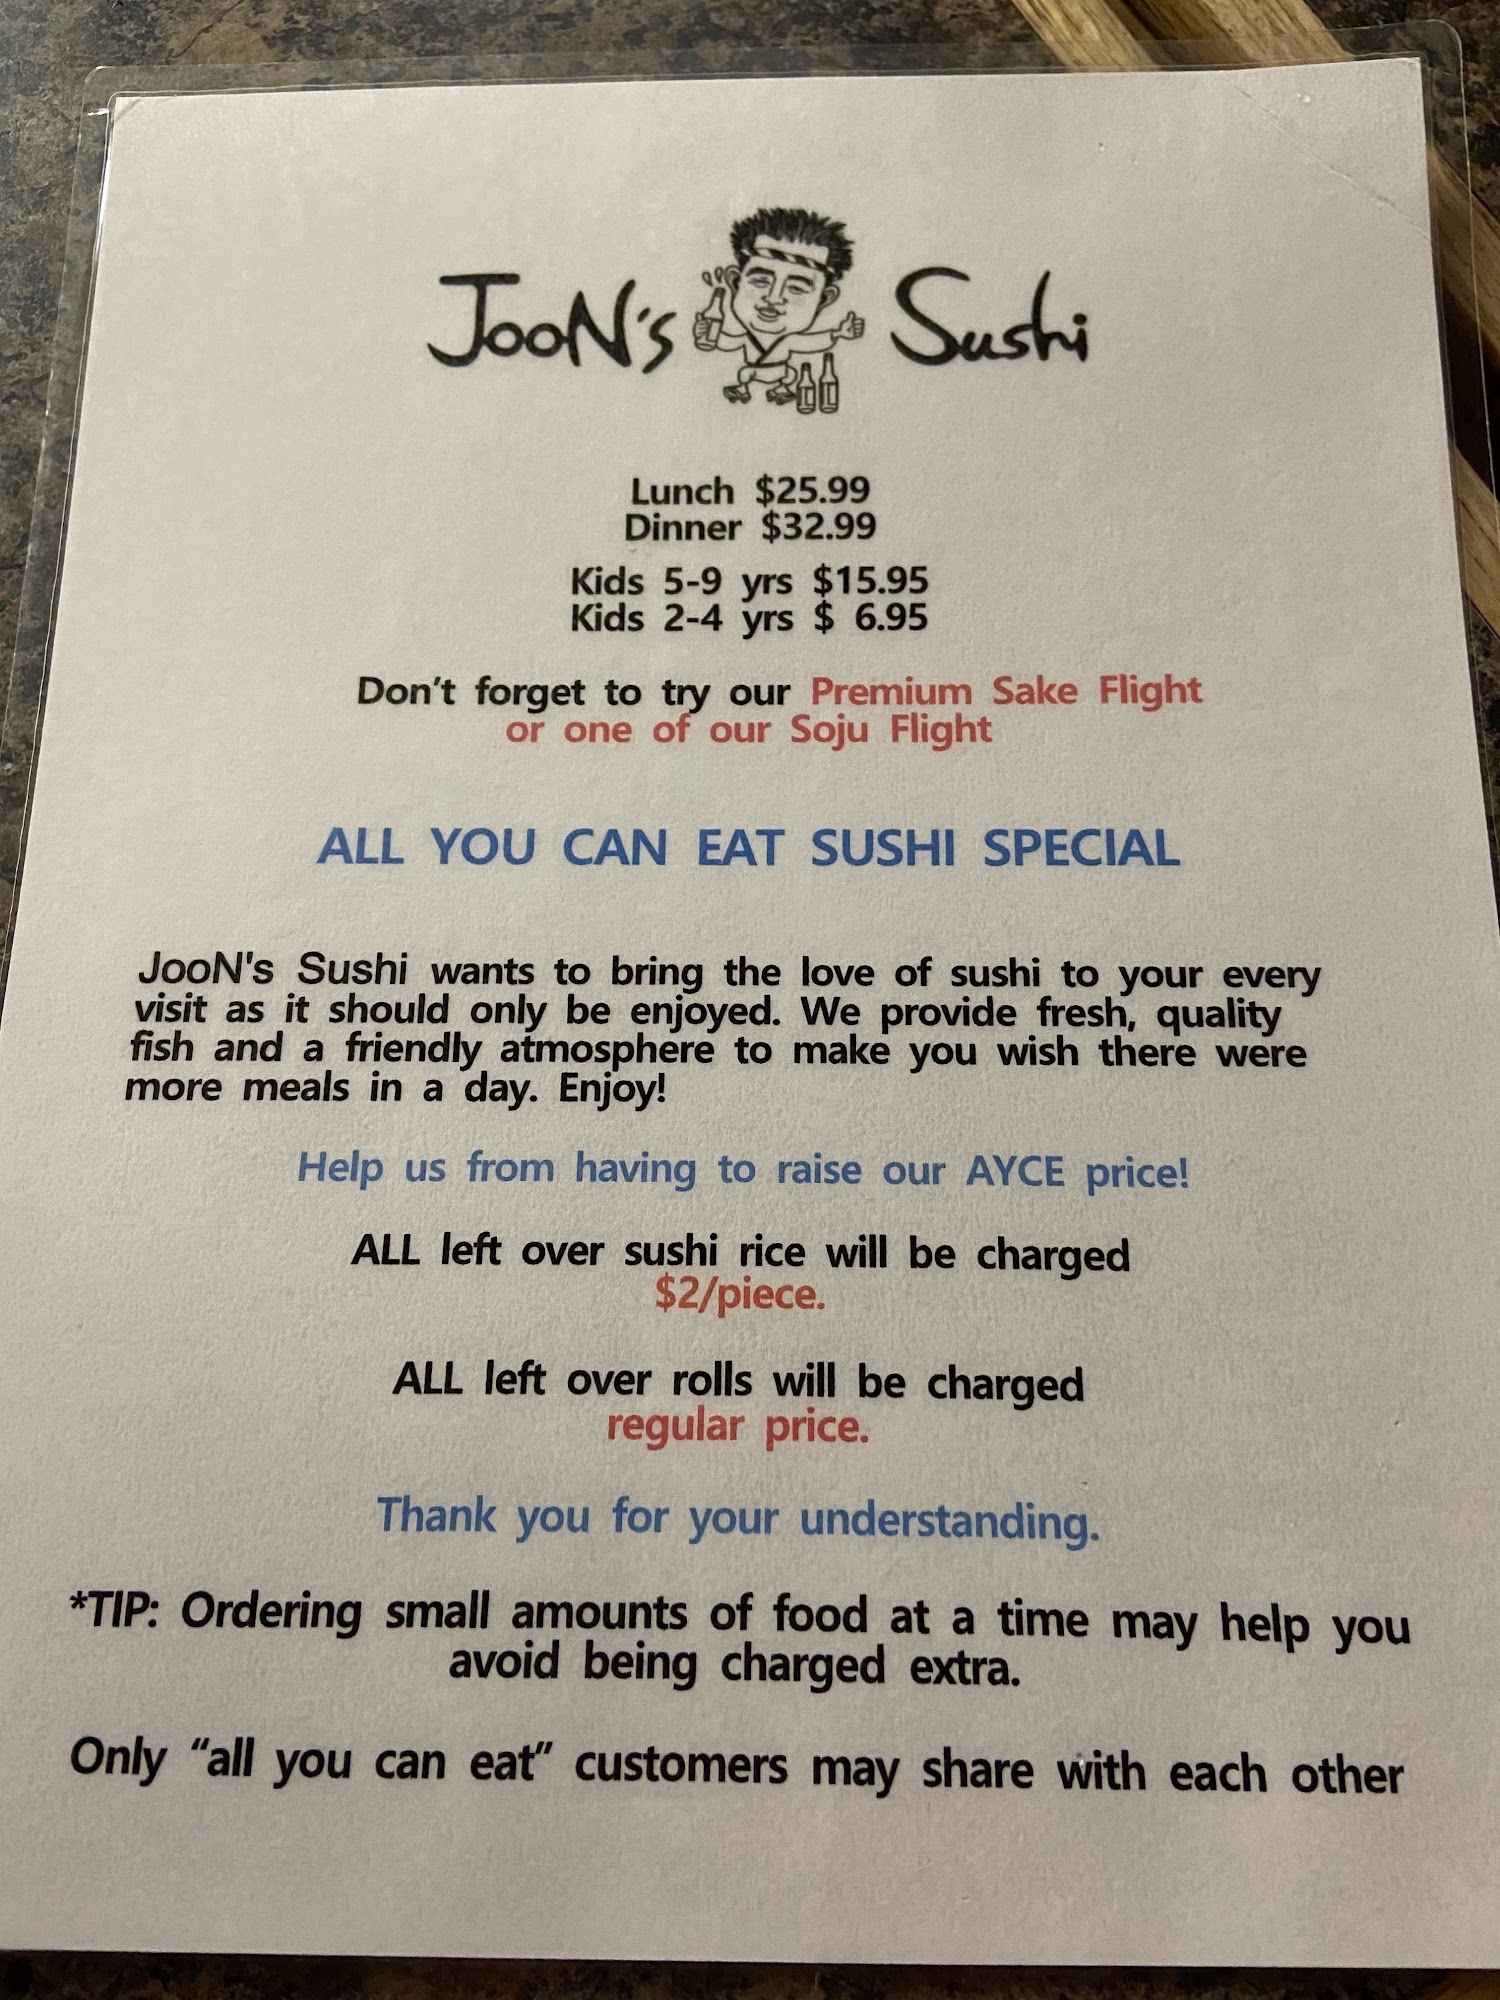 JooN's Sushi
Lunch $25.99
Dinner $32.99
Kids 5-9 yrs $15.95
Kids 2-4 yrs $ 6.95
Don't forget to try our Premium Sake Flight
or one of our Soju Flight
ALL YOU CAN EAT SUSHI SPECIAL
JooN's Sushi wants to bring the love of sushi to your every
visit as it should only be enjoyed. We provide fresh, quality
fish and a friendly atmosphere to make you wish there were
more meals in a day. Enjoy!
Help us from having to raise our AYCE price!
ALL left over sushi rice will be charged
$2/piece.
ALL left over rolls will be charged
regular price.
Thank you for your understanding.
*TIP: Ordering small amounts of food at a time may help you
avoid being charged extra.
Only “all you can eat” customers may share with each other